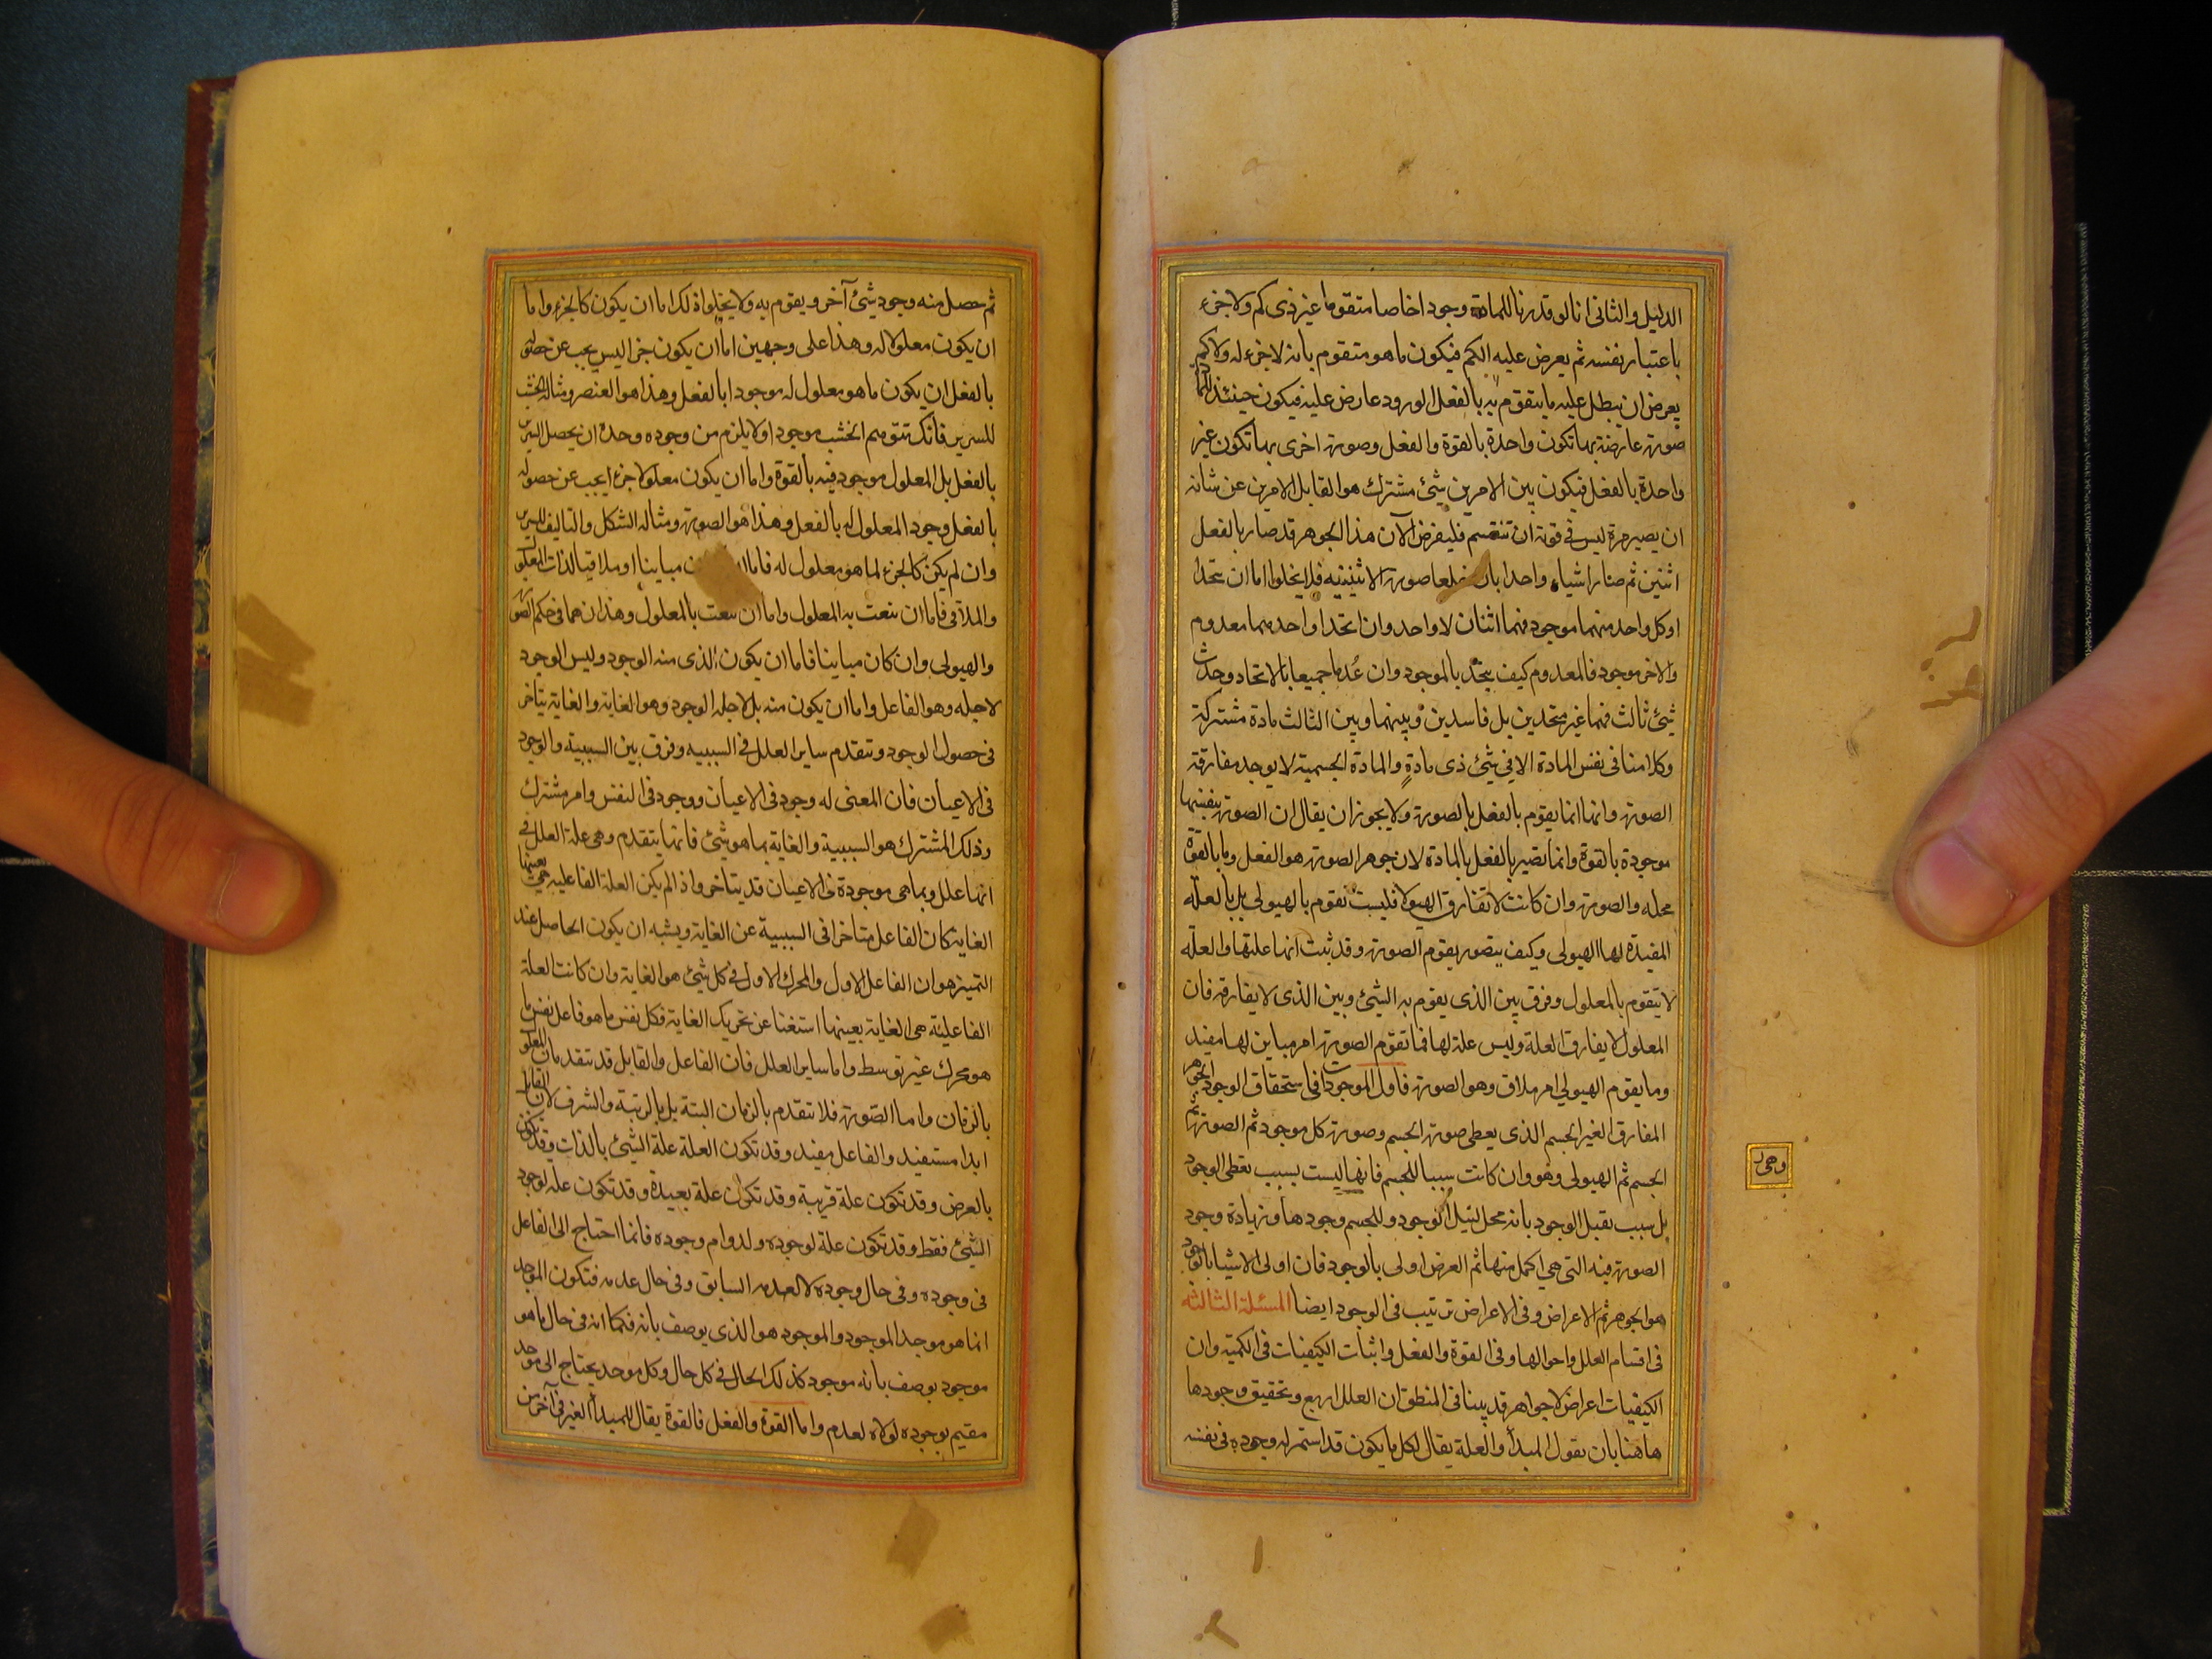 الدليل والثانى انا لو قدرنا للمادة وجودا خاصا متقوما غير ذى كم ولا جزء
باعتبار نفسه ثم يعرض عليه الكم فيكون ما هو متقوم بانه لا جزء له ولا كم
يعرض ان يبطل عليه ما يتقوم به بالفعل لورود عارض عليه فيكون حينئذ للمادة
صورة عارضة بها تكون واحدة بالقوة والفعل وصورة اخرى بها تكون غير
واحدة بالفعل فيكون بين الامرين شئ مشترك هو القابل للامرين عن شانه
ان يصير مرة ليس فى قوته ان تنقسم فليفرض الآن هذا الجوهر قد صار بالفعل
اثنين ثم صارا شيا واحدا بان خلعا صورة الاثنينية فلا يخلوا اما ان تحدا
او كل واحد منهما موجود فهما اثنان لا واحد وان اتحدا واحدهما معدوم
والاخر موجود فالمعدوم كيف يتحد بالموجود وان عُدما جميعا بالاتحاد وحدث
شئ ثالث فهما غير متحدين بل فاسدين وبينهما وبين الثالث مادة مشتركة
وكلامنا فى نفس المادة لا فى شئ ذى مادةٍ والمادة الجسمية لا يوجد مفارقة
الصورة وانها انما يقوم بالفعل بالصورة ولا يجوز ان يقال ان الصورة بنفسها
موجودة بالقوة وانما تصير بالفعل بالمادة لان جوهر الصورة هو الفعل وما بالقوة
محله والصورة وان كانت لا تفارق الهيولا فليست تقوم بالهيولى بل بالعلة
المفيدة لها الهيولى وكيف يتصور يقوم الصورة وقد ثبت انها علتها والعلة
لا يتقوم بالمعلول وفرق بين الذى يقوم به الشئ وبين الذى لا يفارقه فان
المعلول لا يفارق العلة وليس علة لها فما تقوم الصورة امر مباين لها مفيد
وما يقوم الهيولي امر ملاق وهو الصورة فاول الموجودات فى استحقاق الوجود الجوهر
المفارق الغير الجسم الذى يعطى صورة الجسم وصورة كل موجود ثم الصورة ثم
الجسم ثم الهيولى وهو وان كانت سببا للجسم فانها ليست بسبب يعطى الوجود
بل سبب يقبل الوجود بانه محل لنيل الوجود وللجسم وجودها وزيادة وجود
الصورة فيه التى هي اكمل منها ثم العرض اولى بالوجود فان اولى الاشيا بالوجود
هو الجوهر ثم الاعراض وفى الاعراض ترتيب فى الوجود ايضا المسئلة الثالثة
فى اقسام العلل واحوالها وفى القوة والفعل واثبات الكيفيات فى الكمية وان
الكيفيات اعراض لا جواهر قد بينا فى المنطق ان العلل اربع وتحقيق وجودها
هاهنا بان يقول المبدأ والعلة يقال لكل ما يكون قد استمر له وجوده فى نفسه
وهى
ثم حصل منه وجود شئ آخر ويقوم به ولا يخلوا ذلك اما ان يكون كالجزء واما
ان يكون معلولا له وهذا على وجهين اما ان يكون جزا ليس يجب عن حصوله
بالفعل ان يكون ما هو معلول له موجودا بالفعل وهذا هو العنصر ومثاله الخشب
للسرير فانك تتوهم الخشب موجودا ولا يلزم من وجوده وحده ان يحصل السرير
بالفعل بل المعلول موجود فيه بالقوة واما ان يكون معلولا جزءا يجب عن حصوله
بالفعل وجود المعلول له بالفعل وهذا هو الصورة ومثاله الشكل والتاليف للسرير
وان لم يكن كالجزء لما هو معلول له فاما ان مباينا او ملاقيا لذات المعلول
والملاقى فاما ان ينعت به المعلول واما ان ينعت بالمعلول وهذان هما فى حكم الصورة
والهيولى وان كان مباينا فاما ان يكون الذى منه الوجود وليس الوجود
لاجله وهو الفاعل واما ان يكون منه بل لاجله الوجود وهو الغاية والغاية يتاخر
فى حصول الوجود وتتقدم ساير العلل فى السببيه وفرق بين السببية والوجود
فى الاعيان فان المعنى له وجود فى الاعيان ووجود فى النفس وامر مشترك
وذلك المشترك هو السببية والغاية بما هو شئ فانها يتقدم وهى علة العلل فى
انها علل وبما هى موجودة فى الاعيان قد يتاخر واذا لم يكن العلة الفاعليه هى بعينها
الغاية كان الفاعل متاخرا فى السببية عن الغاية ويشبه ان يكون الحاصل عند
التميز هو ان الفاعل الاول والمحرك الاول فى كل شئ هو الغاية وان كانت العلة
الفاعلية هى الغاية بعينها استغنا عن تحريك الغاية فكل نفس ما هو فاعل نفس ما
هو محرك غير توسط واما ساير العلل فان الفاعل والقابل قد يتقدمان المعلول
بالزمان واما الصورة فلا تتقدم بالزمان البتة بل بالرتبة والشرف لان القابل
ابدا مستفيد والفاعل مفيد وقد تكون العلة علة الشئ بالذات وقد تكون
بالعرض وقد تكون علة قريبة وقد تكون علة بعيدة وقد تكون علة لوجود
الشئ فقط وقد تكون علة لوجوده ولدوام وجوده فانما احتاج الى الفاعل
فى وجوده وفى حال وجوده لا لعدمه السابق وفى حال عدمه فتكون الموجد
انما هو موجد الموجود والموجود هو الذى يوصف بانه فكما انه فى حال ما هو
موجود يوصف بانه موجود كذلك الحال فى كل حال وكل موجد يحتاج الى موجد
مقيم لوجوده لولاه لعدم واما القوة والفعل فالقوة يقال للمبدأ الغير فى آخر من